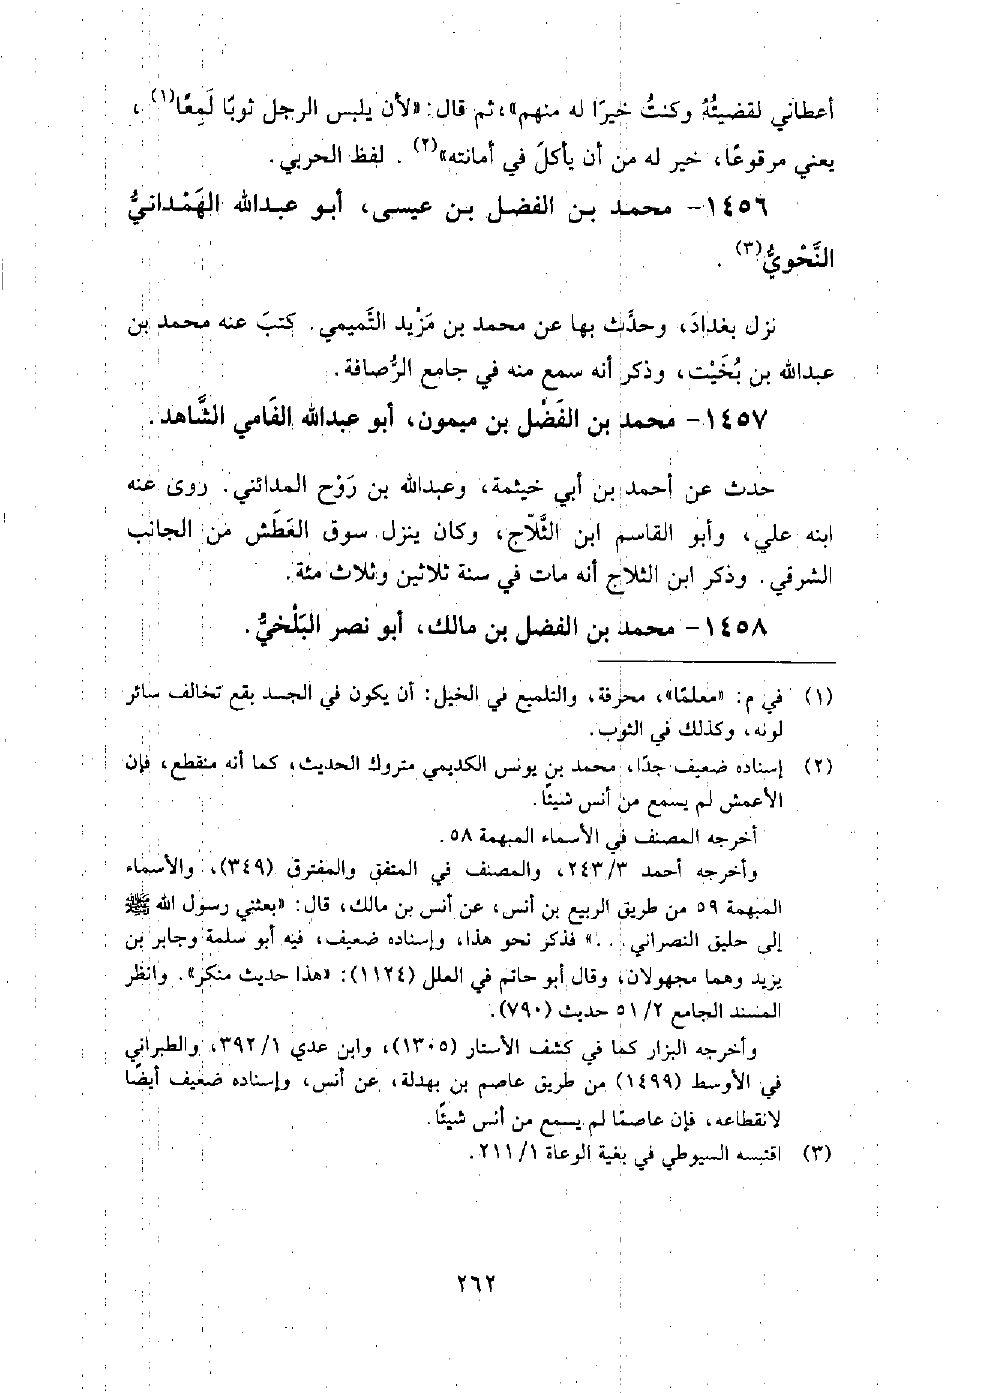 أعطاني لقضيتُهُ وكنتُ خيرًا له منهم»، ثم قال: «لأن يلبس الرجل ثوبًا لَمِعًا(١)،
يعني مرقوعًا، خير له من أن يأكلَ في أمانته»(٢). لفظ الحربي.
١٤٥٦- محمد بن الفضل بن عيسى، أبو عبدالله الهَمْدانيُّ
النَّحْويُّ(٣).
نزل بغدادَ، وحدَّث بها عن محمد بن مَزْيد التَّميمي. كتبَ عنه محمد بن
عبدالله بن بُخَيْت، وذكر أنه سمع منه في جامع الرُّصافة.
١٤٥٧- محمد بن الفَضْل بن ميمون، أبو عبدالله الفَامي الشَّاهد.
حدث عن أحمد بن أبي خيثمة، وعبدالله بن رَوْح المدائني. روى عنه
ابنه علي، وأبو القاسم ابن الثَّلاّج، وكان ينزل سوق العَطَش من الجانب
الشرقي. وذكر ابن الثلاج أنه مات في سنة ثلاثين وثلاث مئة.
١٤٥٨- محمد بن الفضل بن مالك، أبو نصر البَلْخيُّ.
(١) في م: «معلمًا»، محرفة، والتلميع في الخيل: أن يكون في الجسد بقع تخالف سائر
لونه، وكذلك في الثوب.
(٢) إسناده ضعيف جدًا، محمد بن يونس الكديمي متروك الحديث، كما أنه منقطع، فإن
الأعمش لم يسمع من أنس شيئًا.
أخرجه المصنف في الأسماء المبهمة ٥٨.
وأخرجه أحمد ٢٤٣/٣، والمصنف في المتفق والمفترق (٣٤٩)، والأسماء
المبهمة ٥٩ من طريق الربيع بن أنس، عن أنس بن مالك، قال: «بعثني رسول الله ﷺ
إلى حليق النصراني...» فذكر نحو هذا، وإسناده ضعيف، فيه أبو سلمة وجابر بن
يزيد وهما مجهولان، وقال أبو حاتم في العلل (١١٢٤): «هذا حديث منكر». وانظر
المسند الجامع ٥١/٢ حديث (٧٩٠).
وأخرجه البزار كما في كشف الأستار (١٣٠٥)، وابن عدي ٣٩٢/١، والطبراني
في الأوسط (١٤٩٩) من طريق عاصم بن بهدلة، عن أنس، وإسناده ضعيف أيضًا
لانقطاعه، فإن عاصمًا لم يسمع من أنس شيئًا.
(٣) اقتبسه السيوطي في بغية الوعاة ٢١١/١.
٢٦٢